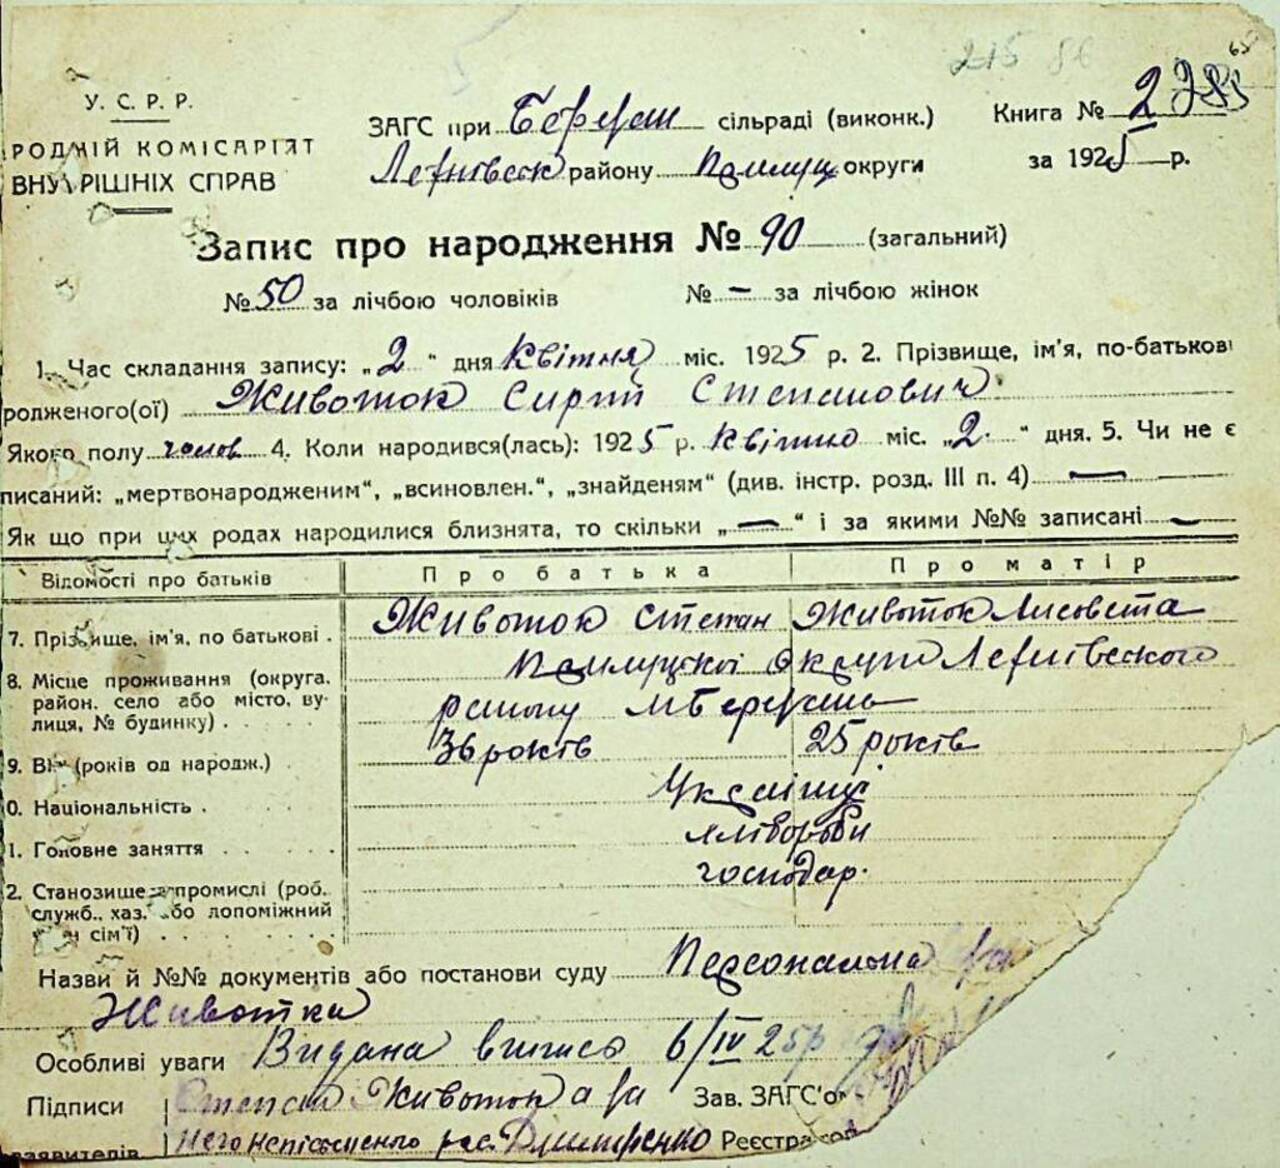 215 86 65
У. С. Р. Р.
РОДНІЙ КОМІСАРІЯТ
ВНУТРІШНІХ СПРАВ
ЗАГС при Березан сільраді (виконк.)
району округи
Книга № 2
за 1925 р.
Запис про народження № 90 (загальний)
№ 50 за лічбою чоловіків № – за лічбою жінок
1. Час складання запису: „2“ дня Квітня міс. 1925 р. 2. Прізвище, ім'я, по-батькові
родженого(ої) Животок Сиргій Степанович
Якого полу чолов 4. Коли народився(лась): 1925 р. Квітню міс. „2.“ дня. 5. Чи не є
писаний: „мертвонародженим“, „всиновлен.“, „знайденям“ (див. інстр. розд. III п. 4) —
Як що при цих родах народилися близнята, то скільки „—“ і за якими №№ записані —
Відомості про батьків Про батька Про матір
7. Прізвище, ім'я, по батькові . Животок Степан Животок Лисовета
8. Місце проживання (округа, район, село або місто, вулиця, № будинку) . . Прилуцкої Округи
району м Березань
9. Вік (років од народж.) 36 років 25 років
0. Національність . Україінці
1. Головне заняття . . . . хліборобы
2. Становище в промислі (роб.
служб., хаз. або лопоміжний
член сім'ї) . . . . господар.
Назви й №№ документів або постанови суду Персональна
Животка
Особливі уваги Видана впись 6/IV 25р
Підписи Степан Животок а за Зав. ЗАГС'о
заявителів него неписьменого рос. Дмитренко Реєстра